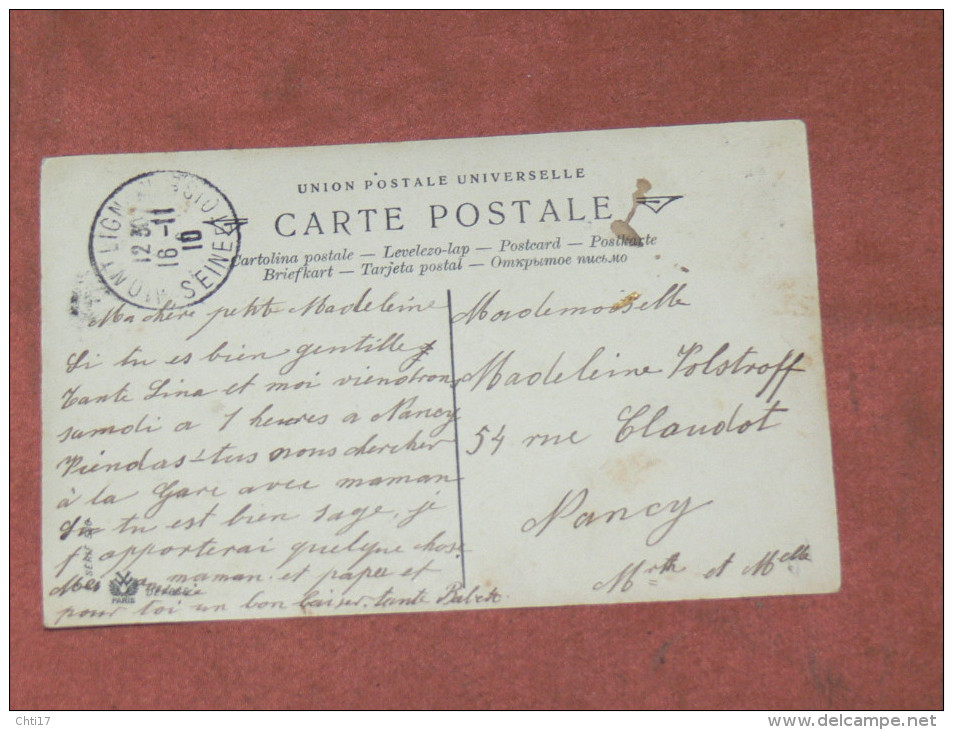 UNION POSTALE UNIVERSELLE
CARTE POSTALE
Cartolina postale — Levelezo-lap — Postcard — Postkarte
Briefkart — Tarjeta postal — Открытое письмо
MONTIGN
12 30
16 -11
10
SEINE
Ma chère petite Madeleine
Si tu es bien gentille
tante Lina et moi viendrons
samdi a 1 heures a Nancy
Viendas-tus nous chercher
à la Gare avec maman
Si tu est bien sage, je
t'apporterai quelque chose
maman et papa et
pour toi un bon baiser. tante
SERIE
PARIS
Mademoiselle
Madeleine Volstroff
54 rue Claudot
Nancy
Mrth et Melle
Chti17
www.delcampe.net